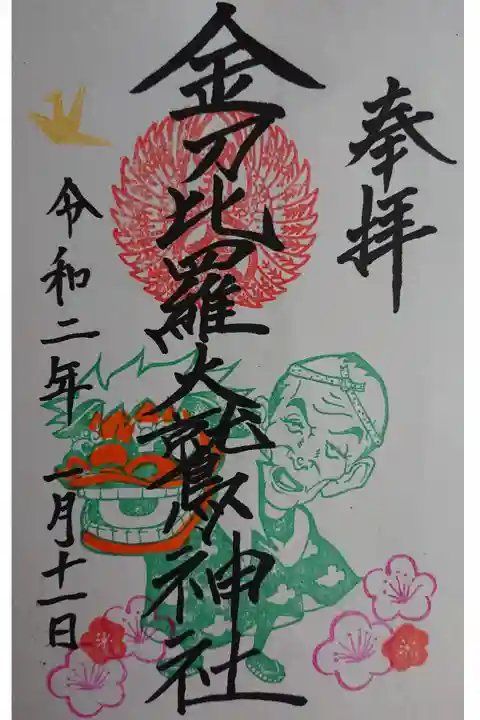 奉拝
金刀比羅大鷲神社
令和二年 一月十一日